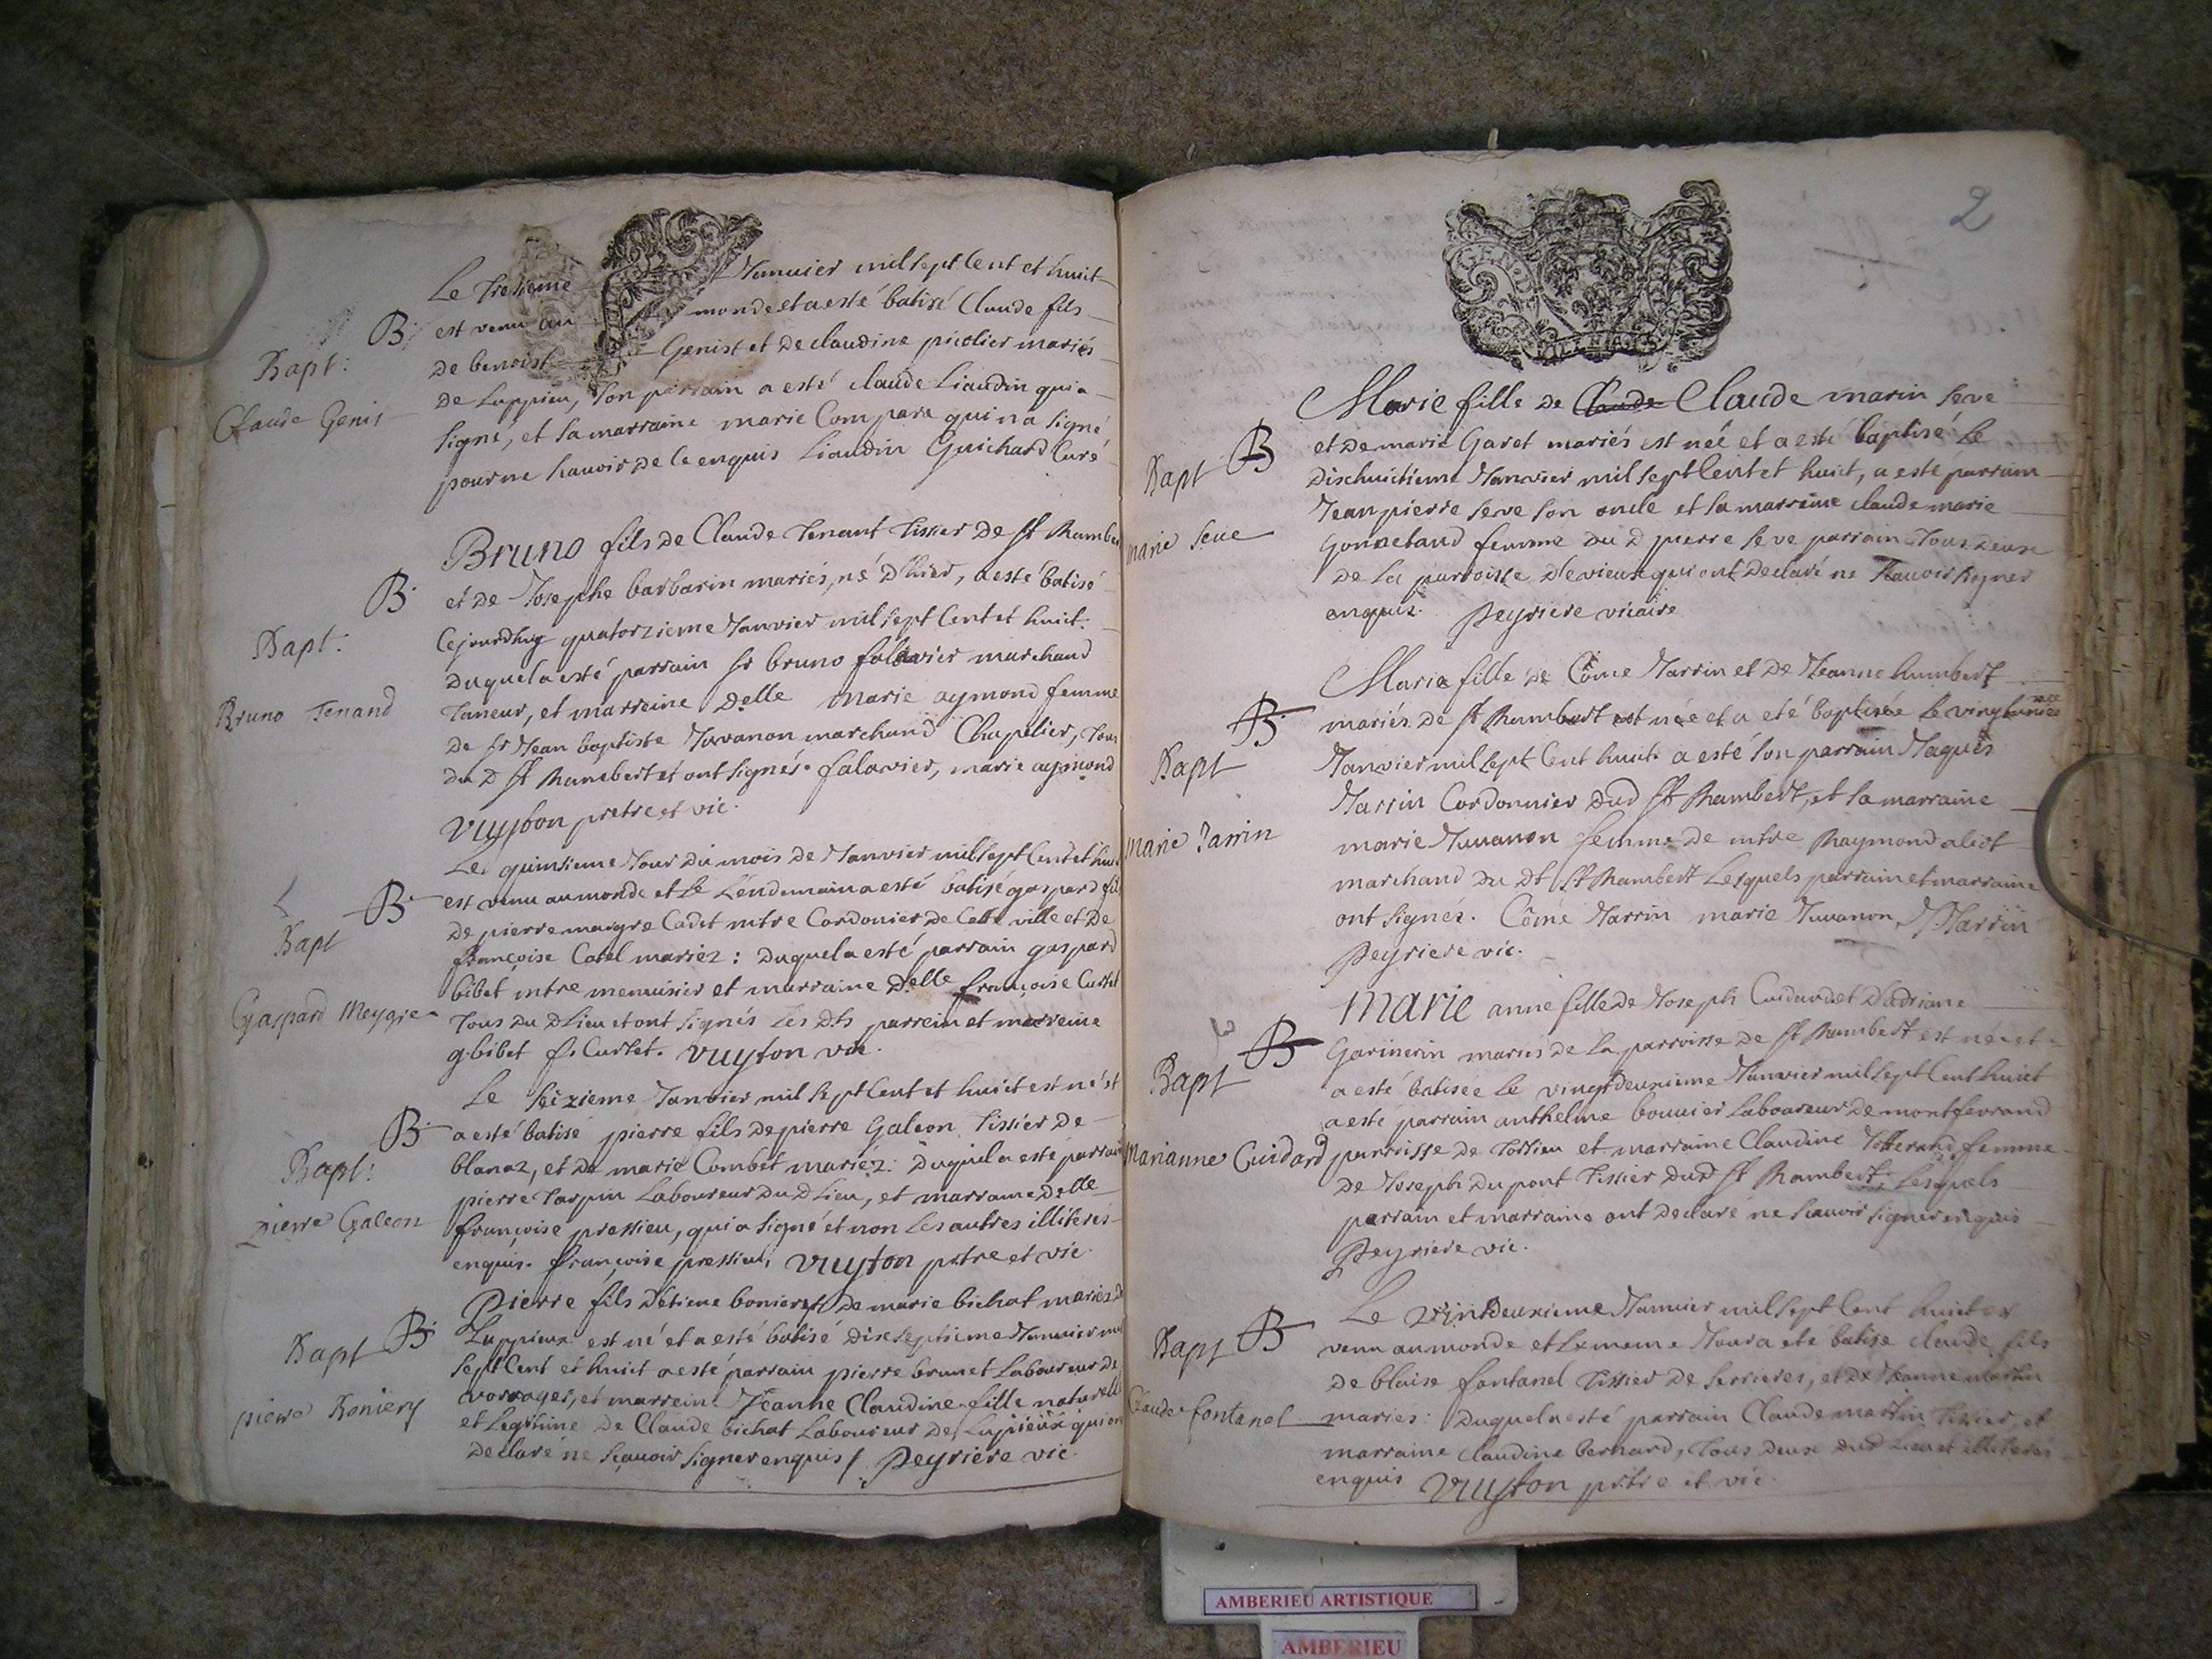 Le tresieme Januier mil sept Cent et huit
B. est venu au monde et a esté batisé Claude fils
Bapt: de benoist Genist et de claudine picolier mariés
Claude Genis de Luppieu, son parrain a esté claude Liaudin qui a
signé, et sa marraine marie Compara qui n'a signé
pour ne scauoir de ce enquis Liaudin Guichard Curé
Bruno fils de Claude Tenant tissier de st Rambe
B. et de Josephe barbarin mariés, né d'hier, a esté batisé
Bapt: Cejourdhuy quatorzieme Janvier mil sept Cent et huit.
duquel a esté parrain sr bruno falavier marchand
Bruno Tenand taneur, et marreine delle marie aymond femme
de sr Jean baptiste Juvanon marchand Chapelier, tous
du d st Rambert et ont signés. falavier, marie aymond
vuyton pretre et vic.
Le quinsieme Jour du mois de Janvier mil sept Cent et hui
B. est venu au monde et le Lendemain a esté batisé gaspard fils
Bapt de pierre maigre Cadet mtre Cordonier de Cette ville et de
françoise Catel mariez: duquel a esté parrain gaspard
Gaspard Meygre bibet mtre menuisier et marraine delle françoise Curtet
tous du d Lieu et ont signés les dts parrein et marreine
g. bibet f. Curtet. vuyton vic.
Le seizieme Janvier mil sept Cent et huict est né et
B. a esté batisé pierre fils de pierre Galeon tissier de
Bapt: blanaz, et de marie Combet mariéz: duquel a esté parrain
pierre tarpin Laboureur du d Lieu, et marraine delle
pierre Galeon françoise pressieu, qui a signé et non les autres illiteres
enquis. françoise pressieu, vuyton prtre et vic.
Pierre fils d'étiene bonier et de marie bichat mariés de
Bapt B. Luppieux est né et a esté batisé dixseptieme Januier mil
sept Cent et huict a esté parrain pierre brunet Laboureur de
pierre Boniery vorvages, et marreine Jeanne Claudine fille naturelle
et Legitime de Claude bichat Laboureur de Lupieux qui ont
declaré ne sçauoir signer enquis / Peyriere vic.
2
Marie fille de Claude Claude marin seve
Bapt B et de marie Garet mariés est née et a esté baptisé le
dixhuictieme Janvier mil sept Cent et huit, a esté parrain
Jean pierre seve son oncle et sa marreine claude marie
marie seue Gonnetand femme du d pierre seve parrain tous deux
de la parroisse d'evieux qui ont declaré ne scauoir signer
enquis. Peyriere vicaire
Marie fille de Côme Jarrin et de Jeanne humbert
B. mariés de st Rambert est née et a eté baptisée le vingtunieme
Bapt Janvier mil sept Cent huit. a esté son parrain Jaques
Jarrin Cordonnier dud st Rambert, et sa marraine
marie Jarrin marie Juuanon femme de mtre Raymond aliot
marchand du dt st Rambert Lesquels parrain et marraine
ont signés. Côme Jarrin marie Juuanon J Jarrin
Peyriere vic.
Marie anne fille de Joseph Cuidard et d'adriane
B Garinerin mariés de la parroisse de st Rambert est née et
Bapt a esté batisée le vingtdeuxieme Januier mil sept Cent huict
a esté parrain anthelme bouuier Laboureur de montferrand
Marianne Cuidard parroisse de torcieu et marraine Claudine femme
de Joseph dupont tissier dud st Rambert, Lesquels
parrain et marraine ont declaré ne scauoir signer enquis
Peyriere vic.
Le vintdeuxieme Januier mil sept Cent huict est
Bapt B venu au monde et le meme Jour a eté batisé claude fils
de blaise fontanel tissier de serrieres, et de Jeanne martin
Claude fontanel mariés: duquel a esté parrain Claude martin tissier, et
marraine claudine bernard, tous deux dud Lieu et illiteres
enquis vuyton prtre et vic.
AMBERIEU ARTISTIQUE
AMBERIEU